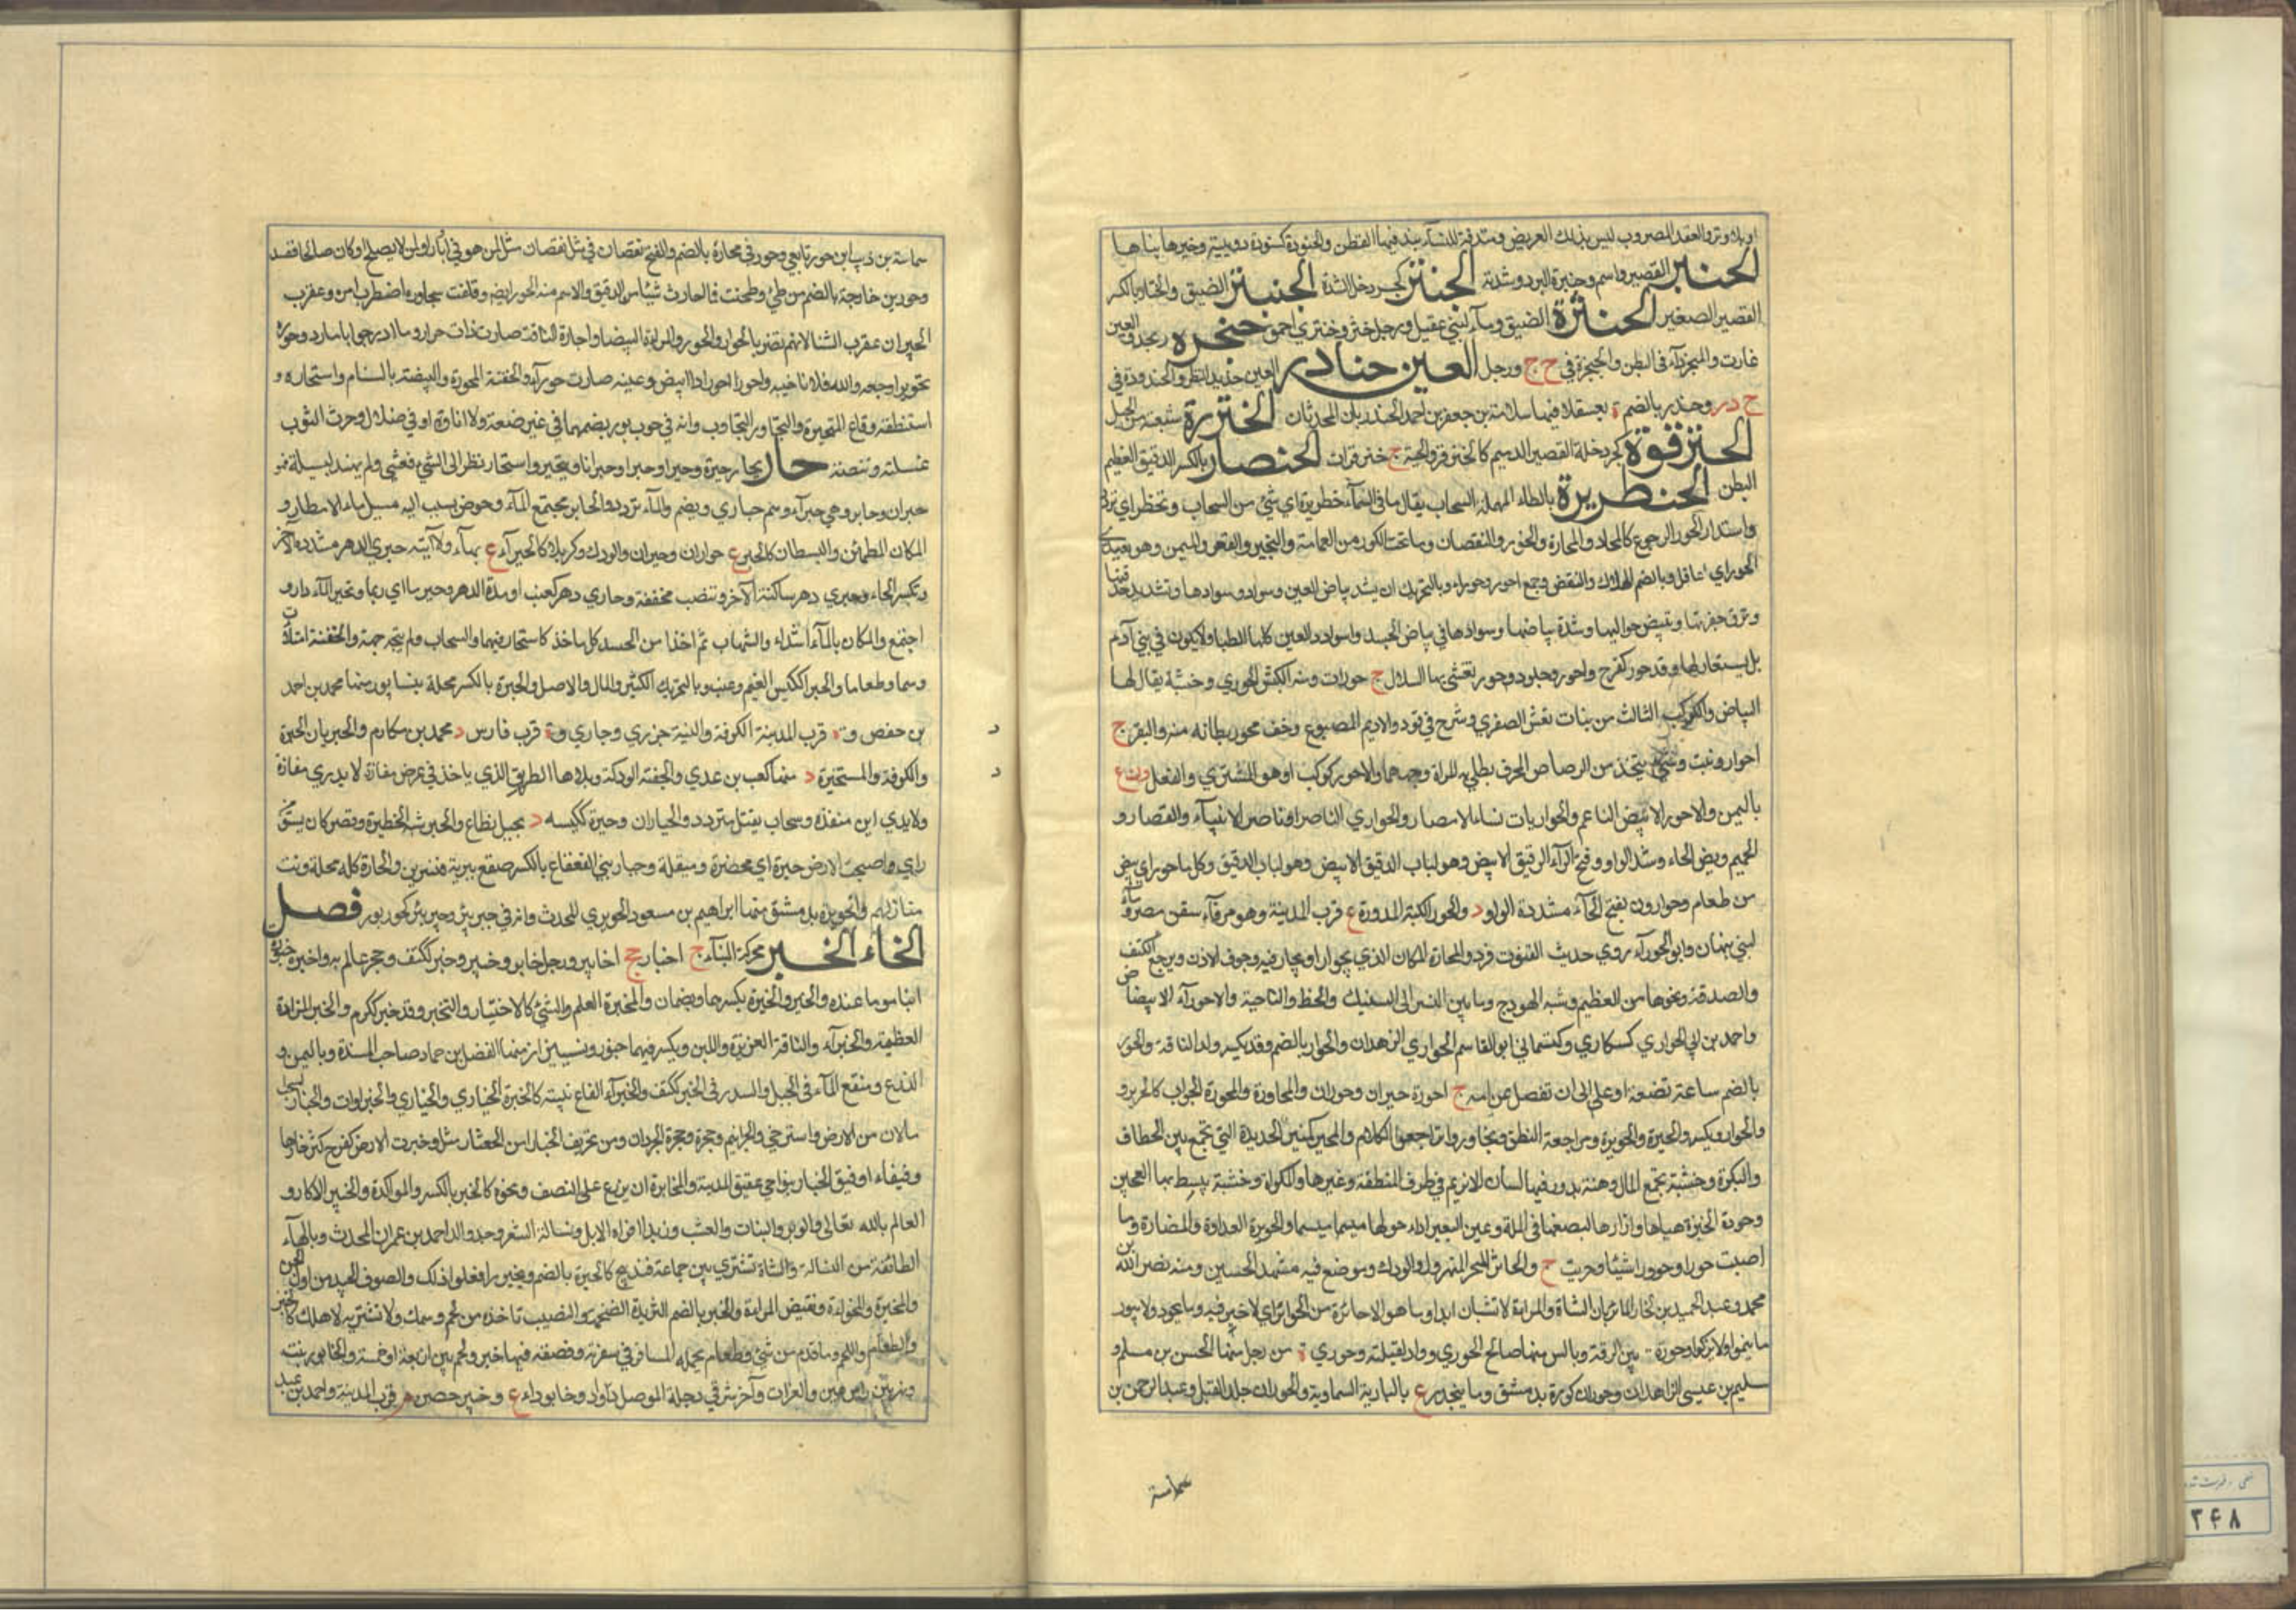 او بلا وتر والعقد المضروب ليس بذلك العريض ومندفة للنساء يندف بها القطن والحنورة كسنورة دويبة وحنرها بناها
الحنبر القصير واسم وحنبرة البرد وشدته الحنتر كجردحل الشدة الحنبتر الضيق والحنتار بالكسر
القصير الصغير الحنثرة الضيق وماء لبني عقيل ورجل حنثر وحنثري احمق حنجره ذبحه والعين
غارت والمحنجر داء في البطن والحنجرة في ح ج ر ورجل العين حنادر العين حديد النظر والحندورة في
ح د ر وحندر بالضم ة بعسقلان منها سلامة بن جعفر بن احمد الحندريان المحدثان الحنزرة شعبة من الجبل
الحنزقرة كجردحلة القصير الدميم كالحنزقر والحية ج حنزقرات الحنصار بالكسر الدقيق العظيم
البطن الحنطريرة بالطاء المهملة السحاب يقال ما في السماء حنطريرة اي شيء من السحاب وتحنطر اي تردد
واستدار الحور الرجوع كالمحار والمحارة والحؤور والنقصان وما تحت الكور من العمامة والتحير والقعر والعمق وهو بعيد
الحور اي عاقل وبالضم الهلاك والنقص وجمع احور وحوراء وبالتحريك ان يشتد بياض العين وسواد سوادها وتستدير حدقتها
وترق جفونها وتبيض حواليها وشدة بياضها وسوادها في بياض الجسد واسوداد العين كلها الظباء ولا يكون في بني آدم
بل يستعار لها وقد حور كفرح واحور وجلود وحور تغشى بها السلال ج حورات ومنه الكبش الحوري وخشبة يقال لها
البياض والكوكب الثالث من بنات نعش الصغرى وشرح في قود والاديم المصبوغ وخف محور بطانته منه والبقر ج
احوار ونبت وشيء يتخذ من الرصاص المحرق تطلي به المراة وجهها والاحور كوكب او هو المشتري والعقل وع
باليمن والاحوري الابيض الناعم والحواريات نساء الامصار والحواري الناصر او ناصر الانبياء والقصار و
الحميم وبضم الحاء وشد الواو وفتح الراء الدقيق الابيض وهو لباب الدقيق وكل ما حور اي بيض
من طعام وحوارون بفتح الحاء مشددة الواو د والحوراء الكية المدورة ع قرب المدينة وهو مرفأ سفن مصر وماء
لبني نبهان وابو الحوراء روي حديث القنوت فرد والمحارة المكان الذي يحور او يحار فيه وجوف الاذن ومرجع الكتف
والصدفة ونحوها من العظم وشبه الهودج وما بين النسر الى السنبك والخط والناحية والاحورار الابيضاض
واحمد بن ابي الحواري كسكارى وكسماني ابو القاسم الحواري الزاهدان والحوار بالضم وقد يكسر ولد الناقة
بالضم ساعة تضعه او على ان تفصل عن امه ج احورة وحيران وحوران والمحاورة والمحورة الجواب كالحوير و
والحوار ويكسر والحيرة والحويرة ومراجعة النطق وتحاوروا تراجعوا الكلام والمحور كمنبر الحديدة التي تجمع بين الخطاف
والبكرة وخشبة تجمع المال وهنة يدور فيها لسان الابزيم في طرف المنطقة وغيرها والمكواة وخشبة يبسط بها العجين
وحور الخبزة هيأها وادارها ليضعها في الملة وعين البعير ادار حولها ميسما والحوير العداوة والمضارة وما
اصبت حورا وحوورا شيئا وحريت ج والحائر المهزول والودك وموضع فيه مشهد الحسين ومنه نصر الله بن
محمد وعبد الحميد بن فخار الحائريان والشاة والمراة لا تشبان ابدا وما هو الا حائرة من الحوائر اي لا خير فيه وما يحور ولا يبور
ما ينمو ولا يزكو وحورة بين الرقة وبالس منها صالح الحوري وواد بالقبلية وحوري ة من دجيل منها الحسن بن مسلم و
سليم بن عيسى الزاهدان وحوران كورة بدمشق وما ينجد وع ببادية السماوة والحوران جلد الفيل وعبد الرحمن بن
سماسة
سماسة بن ذيب ابن حور تابعي وحور في محارة بالضم والفتح نقصان في نقصان مثل لمن هو في ادبار او لمن لا يصلح او كان صالحا ففسد
وحور بن خارجة بالضم من طيء وطحنت فما احارت شيئا من الدقيق والاسم منه الحور ايضا وقلقت محاوره اضطرب امره وعقرب
الحيران عقرب الشتاء لانها تضر بالحوار والحوراء والمراة البيضاء واحارت الناقة صارت ذات حوار وما احار جوابا ما رد وحوره
تحويرا رجعه والله فلانا خيبه واحور احورارا ابيض وعينه صارت حوراء والجفنة المحورة المبيضة بالسنام واستحاره و
استنطقه وقاع المستحيرة والتحاور التجاوب وانه في حور وبور بضمهما في غير صنعة ولا اتاوة او في ضلال وحرت الثوب
غسلته وبيضته حار يحار حيرة وحيرا وحيرا وحيرانا وتحير واستحار نظر الى الشيء فعشي ولم يهتد لسبيله فهو
حيران وحائر وهي حيراء وهم حيارى ويضم والماء تردد والحائر مجتمع الماء وحوض يسيب اليه مسيل ماء الامطار و
المكان المطمئن والبستان كالحير ج حوران وحيران والودك وكربلاء كالحيراء ع بها ولا آتيه حيري الدهر مشددة الآخر
وتكسر الحاء وحيري دهر ساكنة الآخر وتنصب مخففة وحاري دهر كعنب اي مدة الدهر وحير ما اي ربما وتحير الماء دار و
اجتمع والمكان بالماء امتلاء والشباب تم اخذا من الجسد كل ماخذ كاستحار فيهما والسحاب ولم يتجه جهة والجفنة امتلأت
دسما وطعاما والحير ككيس الغيم وعنب وبالتحريك الكثير من المال والاهل والحيرة بالكسر محلة بنيسابور منها محمد بن احمد
بن حفص وة قرب الكوفة والنسبة حيري وحاري وة قرب فارس د محمد بن مكارم والحيريان الحيرة
والكوفة والمستحيرة د منها كعب بن عدي والجفنة الودكة وبلا هاء الطريق الذي ياخذ في عرض مفازة لا يدري
ولا يدري اين منفذه وسحاب يقتل متردد والحياران وحيرة ككيسه د بجبل نطاع والحير شبه الحظيرة وقصر كان بسر من
راي واصبحت الارض حيرة اي مخضرة ومبقلة وحيار بني القعقاع بالكسر صقع ببرية قنسرين والحارة كل محلة دنت
منازلهم والحويرة بدمشق منها ابراهيم بن مسعود الحويري المحدث وانه في حير بير وحير بير كحور بور فصل
الخاء الخبر محركة النبأ ج اخبار جج اخابير ورجل خابر وخبير وخبر ككتف وحجر عالم به واخبره خبوره
انبأه ما عنده والخبر والخبرة بكسرهما ويضمان والمخبرة العلم بالشيء كالاختبار والتخبر وقد خبر ككرم والخبر المزادة
العظيمة والخبراء والناقة الغزيرة اللبن ويكسر فيهما ة بشيراز منها الفضل بن حماد صاحب المسند وة باليمن و
الزرع ومنقع الماء في الجبل والسدر كالخبر ككتف والخبراء القاع تنبته كالخبرة ج الخباري والخباري والخبراوات والخبار كسحاب
ما لان من الارض واسترخى والجراثيم وجحرة الجرذان ومن تجنب الخبار امن العثار مثل وخبرت الارض كفرح كثر خبارها
وفيفاء او فيف الخبار بنواحي عقيق المدينة والمخابرة ان يزرع على النصف ونحوه كالخبر بالكسر والمواكرة والخبير الاكار و
العالم بالله تعالى والوبر والنبات والعشب وزبد افواه الابل ونسالة الشعر وجد والد احمد بن عمران المحدث وبالهاء
الطائفة منه والشاة تشترى بين جماعة فتذبح كالخبرة بالضم وتخبروا فعلوا ذلك والصوف الجيد من اول الجز
والمخبرة المخروءة ونقيض المرآة والخبرة بالضم الثريدة الضخمة والنصيب تاخذه من لحم وسمك وما تشتريه لاهلك كالخبر
والطعام واللحم وما قدم من شيء وطعام يحمله المسافر في سفرته وقصعة فيها خبز ولحم بين اربعة او خمسة والخابور نبت
ونهر بين راس عين والفرات وآخر شرقي دجلة الموصل وواد وخابوراء ع وخيبر حصن م قرب المدينة واحمد بن عبد
٣٤٨